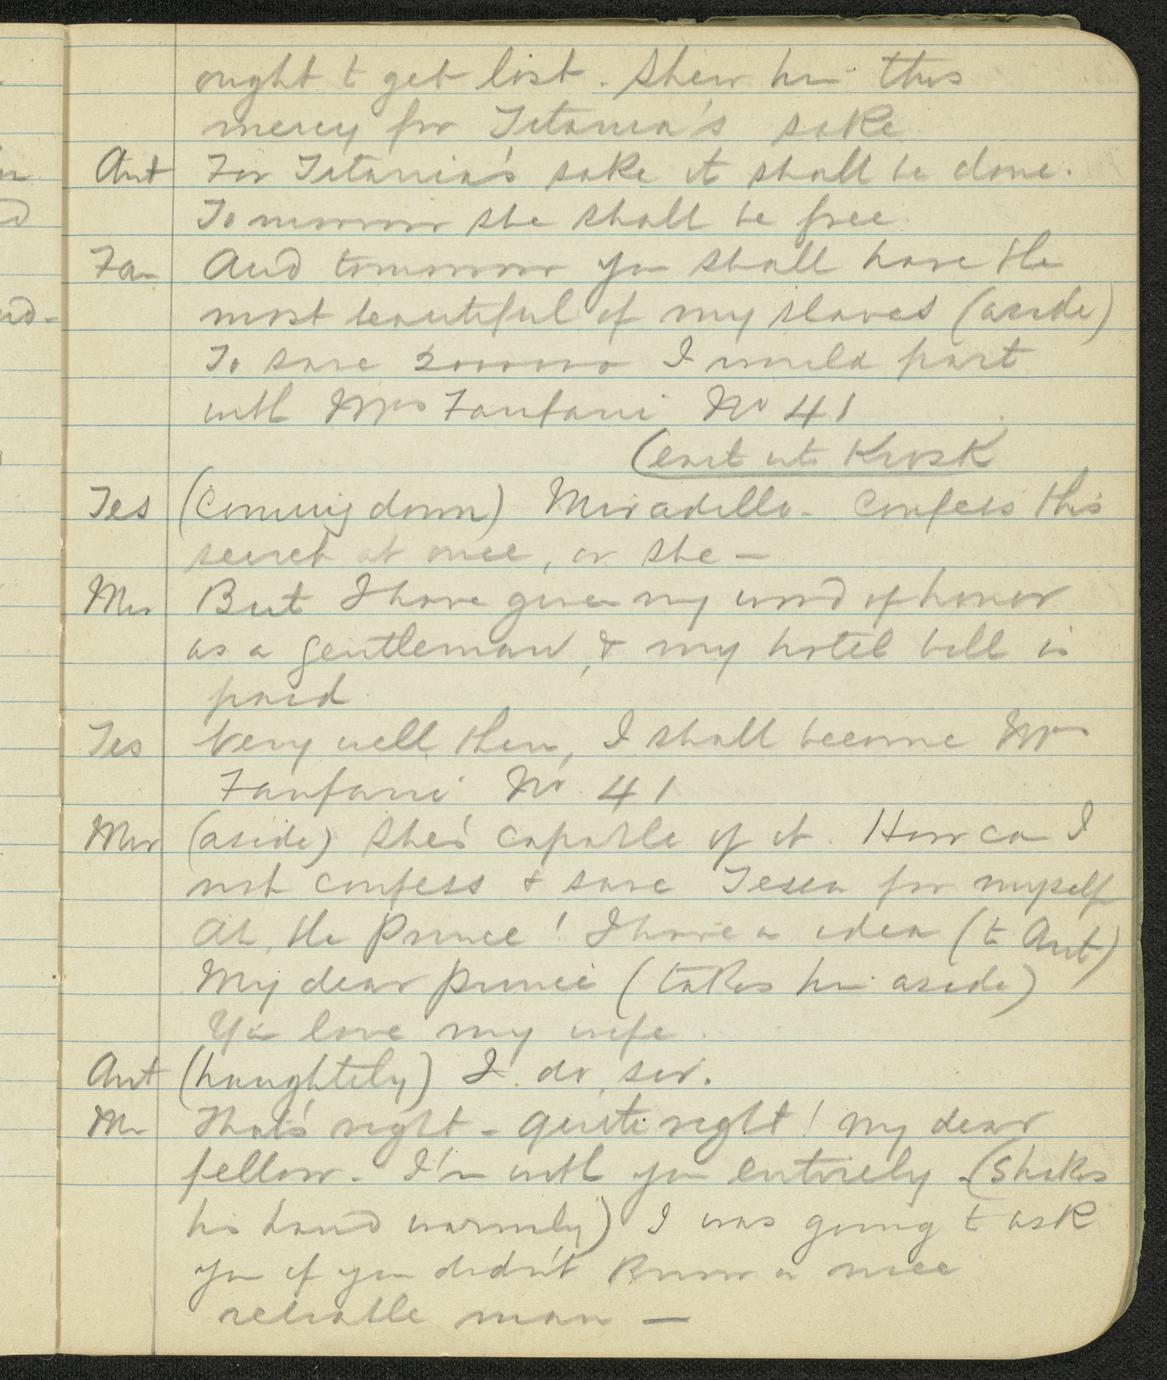 ought t get lost. Shew him this
mercy for Titania's sake
Ant For Titania's sake it shall be done.
Tomorrow she shall be free
Fan And tomorrow you shall have the
most beautiful of my slaves (aside)
To save 2000000 I would part
with Mrs Fanfani No 41
(exit into Kiosk
Tes (Coming down) Miradillo. Confess this
secret at once, or she —
Mir But I have given my word of honor
as a gentleman, & my hotel bill is
paid
Tes Very well then, I shall become Mrs
Fanfani No. 41
Mir (aside) She's capable of it. How can I
not confess & save Tessa for myself
Ah, the Prince! I have a idea (to Ant)
My dear Prince (takes him aside)
You love my wife.
Ant (haughtily) I do, sir.
Mir That's right - quite right! my dear
fellow. I'm with you entirely (Shakes
his hand warmly) I was going t ask
you if you didn't know a nice
reliable man —